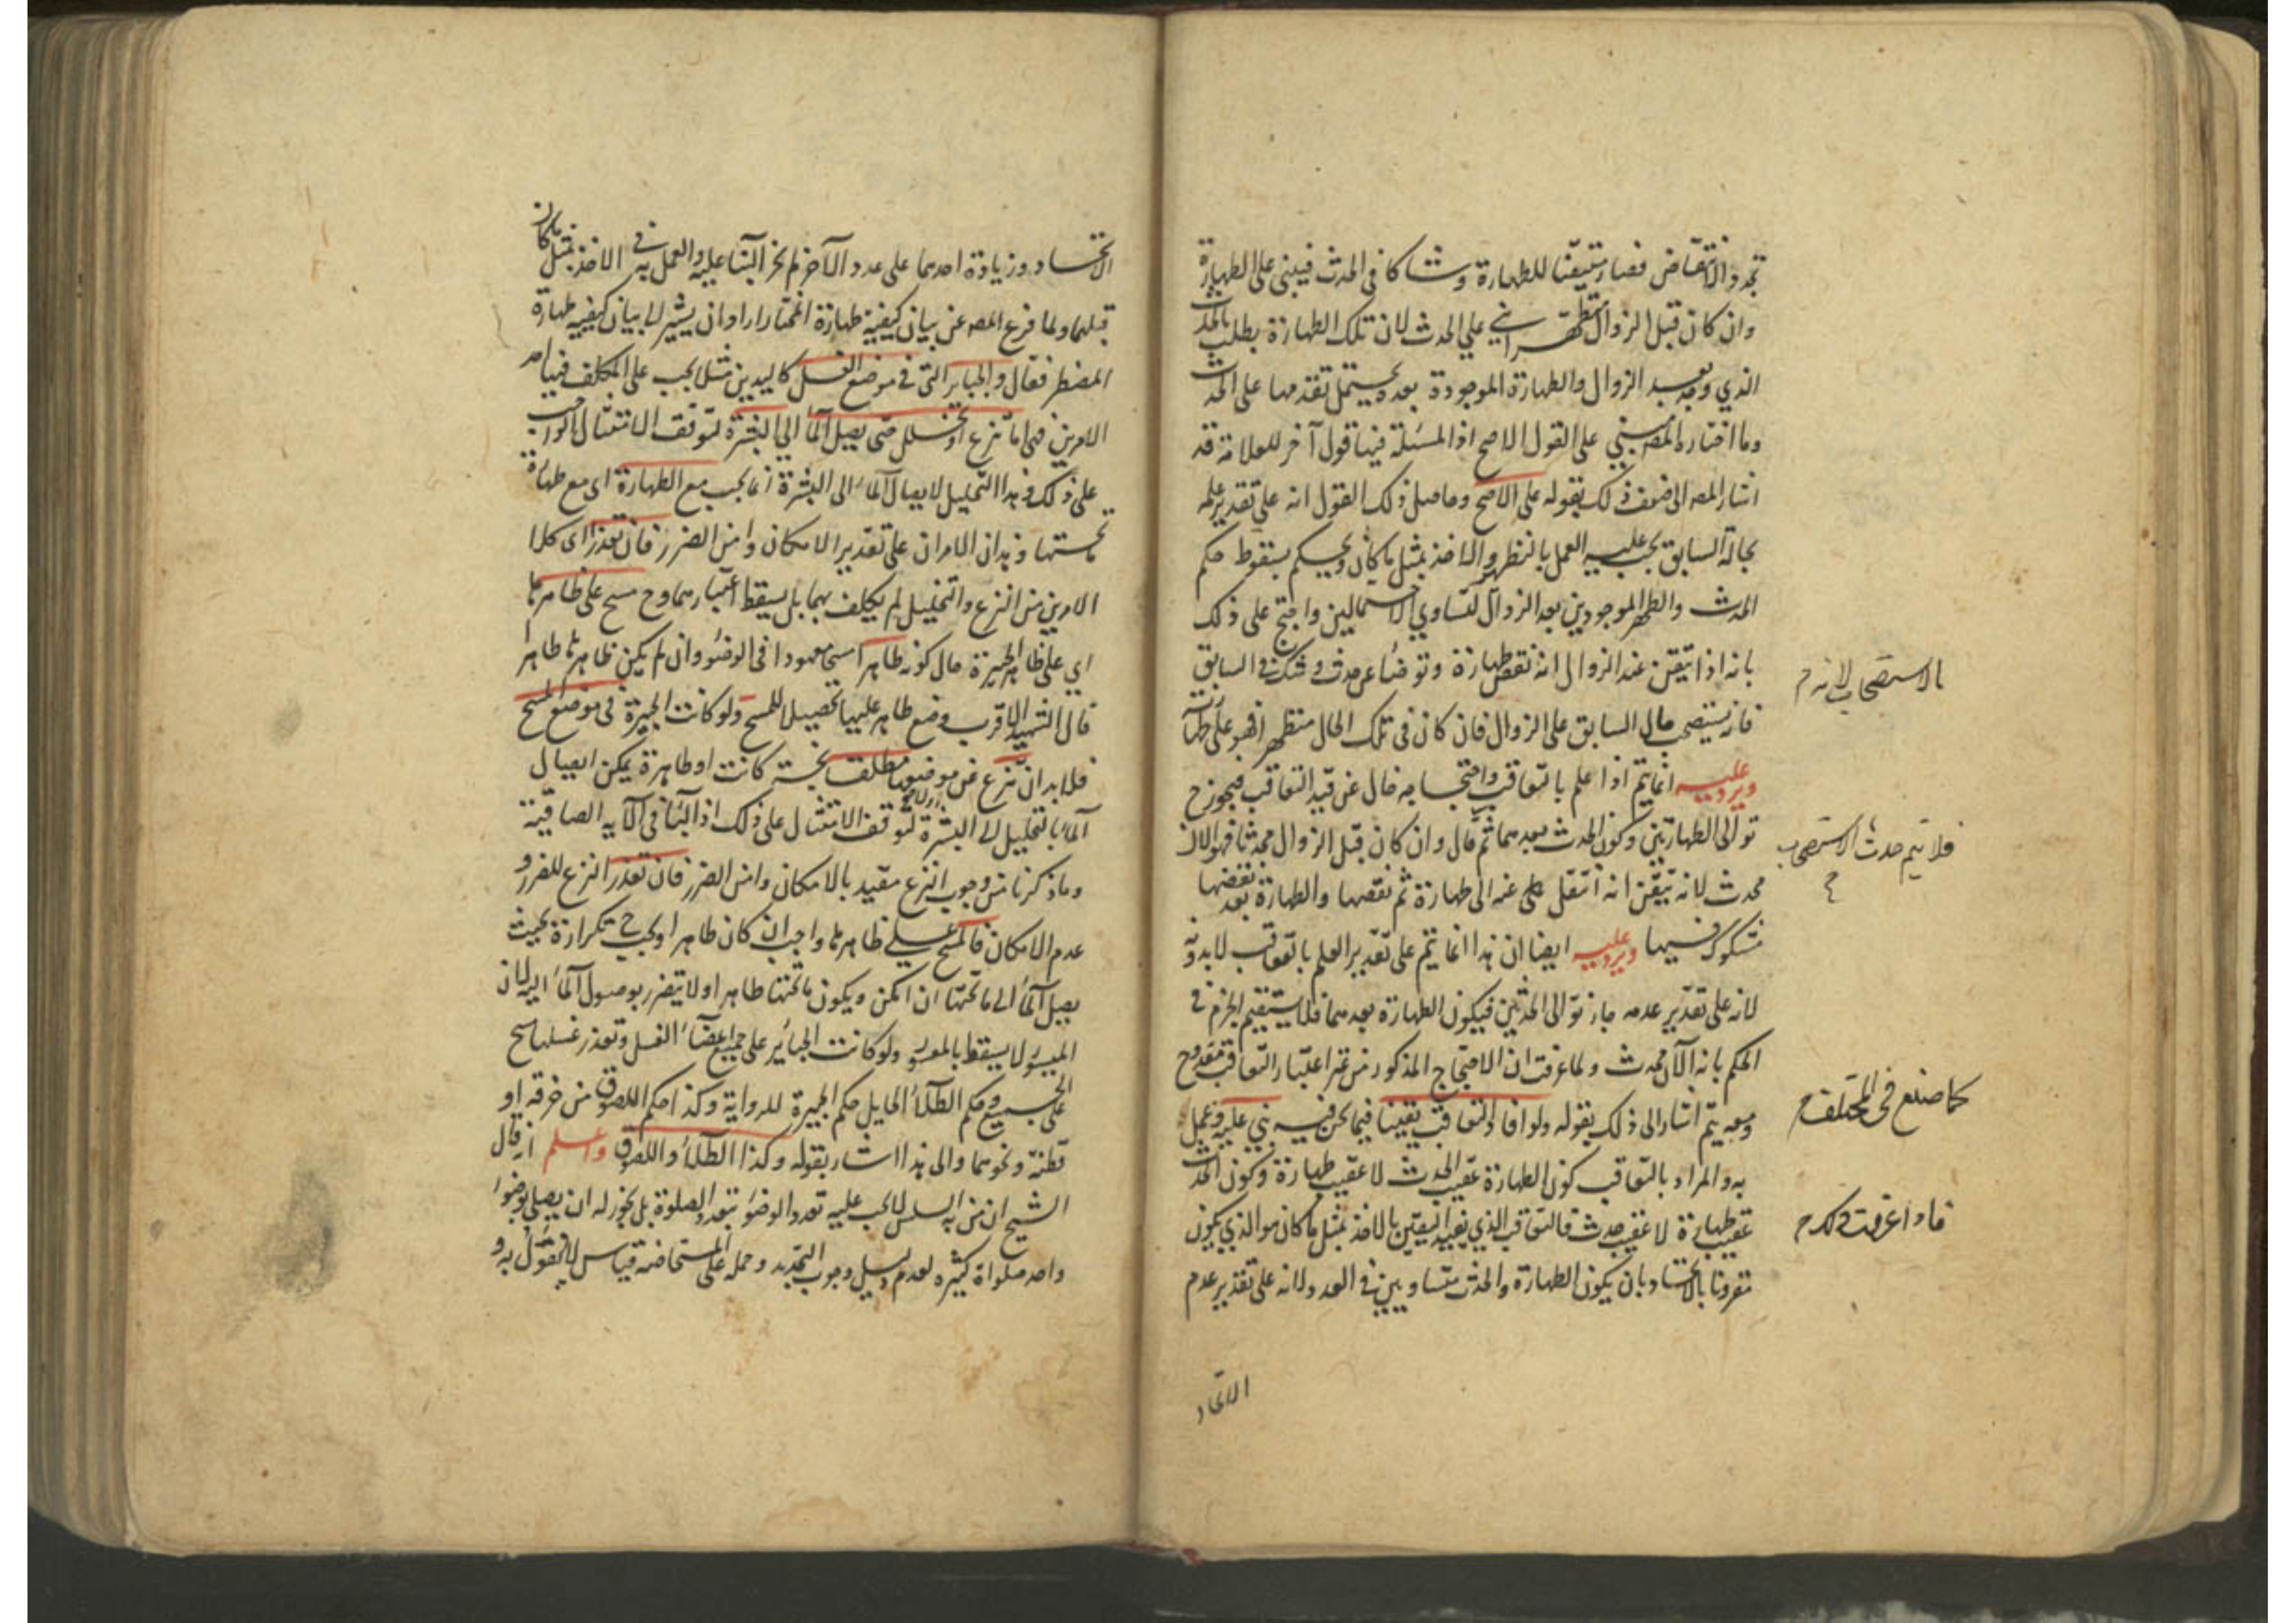 تجدد الانتقاض فصار متيقنا للطهارة وشاكا في الحدث فيبنى على الطهارة
وان كان قبل الزوال متطهرا بنى على الحدث لان تلك الطهارة بطلت بالحدث
الذي وجد بعد الزوال والطهارة الموجودة بعده يحتمل تقدمها على الحدث
وما اختاره المصه مبني على القول الاصح اذ المسئلة فيها قول آخر للعلامة قد
اشار المصه الى ضعف ذلك بقوله على الاصح وحاصل ذلك القول انه على تقدير علمه
بحاله السابق يجب عليه العمل بالنظير والاخذ بمثل ما كان ويحكم بسقوط حكم
الحدث والطهر الموجودين بعد الزوال لتساوي الاحتمالين واحتج على ذلك
بانه اذا تيقن عند الزوال انه نقض طهارة وتوضأ عن حدث وشك في السابق
بالاستصحاب لانه م
فانه يستصحب حال السابق على الزوال فان كان في تلك الحال متطهرا فهو على طهارته
ويرد عليه انما يتم اذا علم بالتعاقب واحتجاجه خال عن قيد التعاقب فيجوز ح
توالى الطهارتين وكون الحدث بعدهما ثم قال وان كان قبل الزوال محدثا فهو الان
فلا يتم حدث الاستصحاب ح
محدث لانه تيقن انه انتقل عنه الى طهارة ثم نقضها والطهارة بعد نقضها
مشكوك فيها ويرد عليه ايضا ان هذا انما يتم على تقدير العلم بالتعاقب لا بدونه
لانه على تقدير عدمه جاز توالى الحدثين فيكون الطهارة بعدهما فلا يستقيم الجزم في
الحكم بانه الآن محدث ولما عرفت ان الاحتجاج المذكور من غير اعتبار التعاقب مقدوح
كما صنع في المختلف م
ومعه يتم اشار الى ذلك بقوله ولو افاد التعاقب يقينا فيما نحن فيه بني عليه وعمل
به والمراد بالتعاقب كون الطهارة عقيب الحدث لا عقيب طهارة وكون الحدث
عقيب طهارة لا عقيب حدث فالتعاقب الذي يفيد اليقين بالاخذ بمثل ما كان هو الذي يكون
فاذا عرفت ذلك م
مقرونا بالاتحاد بان يكون الطهارة والحدث متساويين في العدد لانه على تقدير عدم
الاتحاد
الاتحاد وزيادة احدهما على عدد الآخر لم يجز البناء عليه والعمل به في الاخذ بمثل ما كان
قبلهما ولما فرغ المصه عن بيان كيفية طهارة المختار اراد ان يشير الى بيان كيفية طهارة
المضطر فقال والجباير التى في موضع الغسل كاليدين مثلا يجب على المكلف فيها احد
الامرين فهى اما تنزع او تخلل حتى يصل الماء الى البشرة لتوقف الامتثال بالواجب
على ذلك وهذا التخليل لايصال الماء الى البشرة انما يجب مع الطهارة اى مع طهارة
ما تحتها وهذان الامران على تقدير الامكان وامن الضرر فان تعذر اى كلا
الامرين من النزع والتخليل لم يكلف بهما بل يسقط اعتبارهما وح مسح على ظاهرها
اي على ظاهر الجبيرة حال كونه طاهرا مسحا معهودا فى الوضوء وان لم يكن ظاهرها طاهرا
قال الشهيد الاقرب وضع طاهر عليها تحصيلا للمسح ولو كانت الجبيرة فى موضع المسح
فلا بد ان تنزع عن موضعها مطلقا نجسة كانت او طاهرة يمكن ايصال
الماء بالتخليل الى البشرة اولا لتوقف الامتثال على ذلك اذ الباء في الآية الصاقية
وما ذكرنا من وجوب النزع مقيد بالامكان وامن الضرر فان تعذر النزع للضرر و
عدم الامكان فالمسح على ظاهرها واجب ان كان طاهرا ويجب ح تكراره بحيث
يصل الماء الى ما تحتها ان امكن ويكون ما تحتها طاهرا ولا يتضرر بوصول الماء اليه لان
الميسور لا يسقط بالمعسور ولو كانت الجبائر على جميع اعضاء الغسل وتعذر غسلها مسح
على الجميع وحكم الطلاء الحايل حكم الجبيرة للرواية وكذا حكم اللصوق من خرقة او
قطنة ونحوهما والى هذا اشار بقوله وكذا الطلاء واللصوق واعلم انه قال
الشيخ ان من به السلس لا يجب عليه تعدد الوضوء بتعدد الصلوة بل يجوز له ان يصلى بوضوء
واحد صلواة كثيره لعدم دليل وجوب التجديد وحمله على المستحاضة قياس لا نقول به و